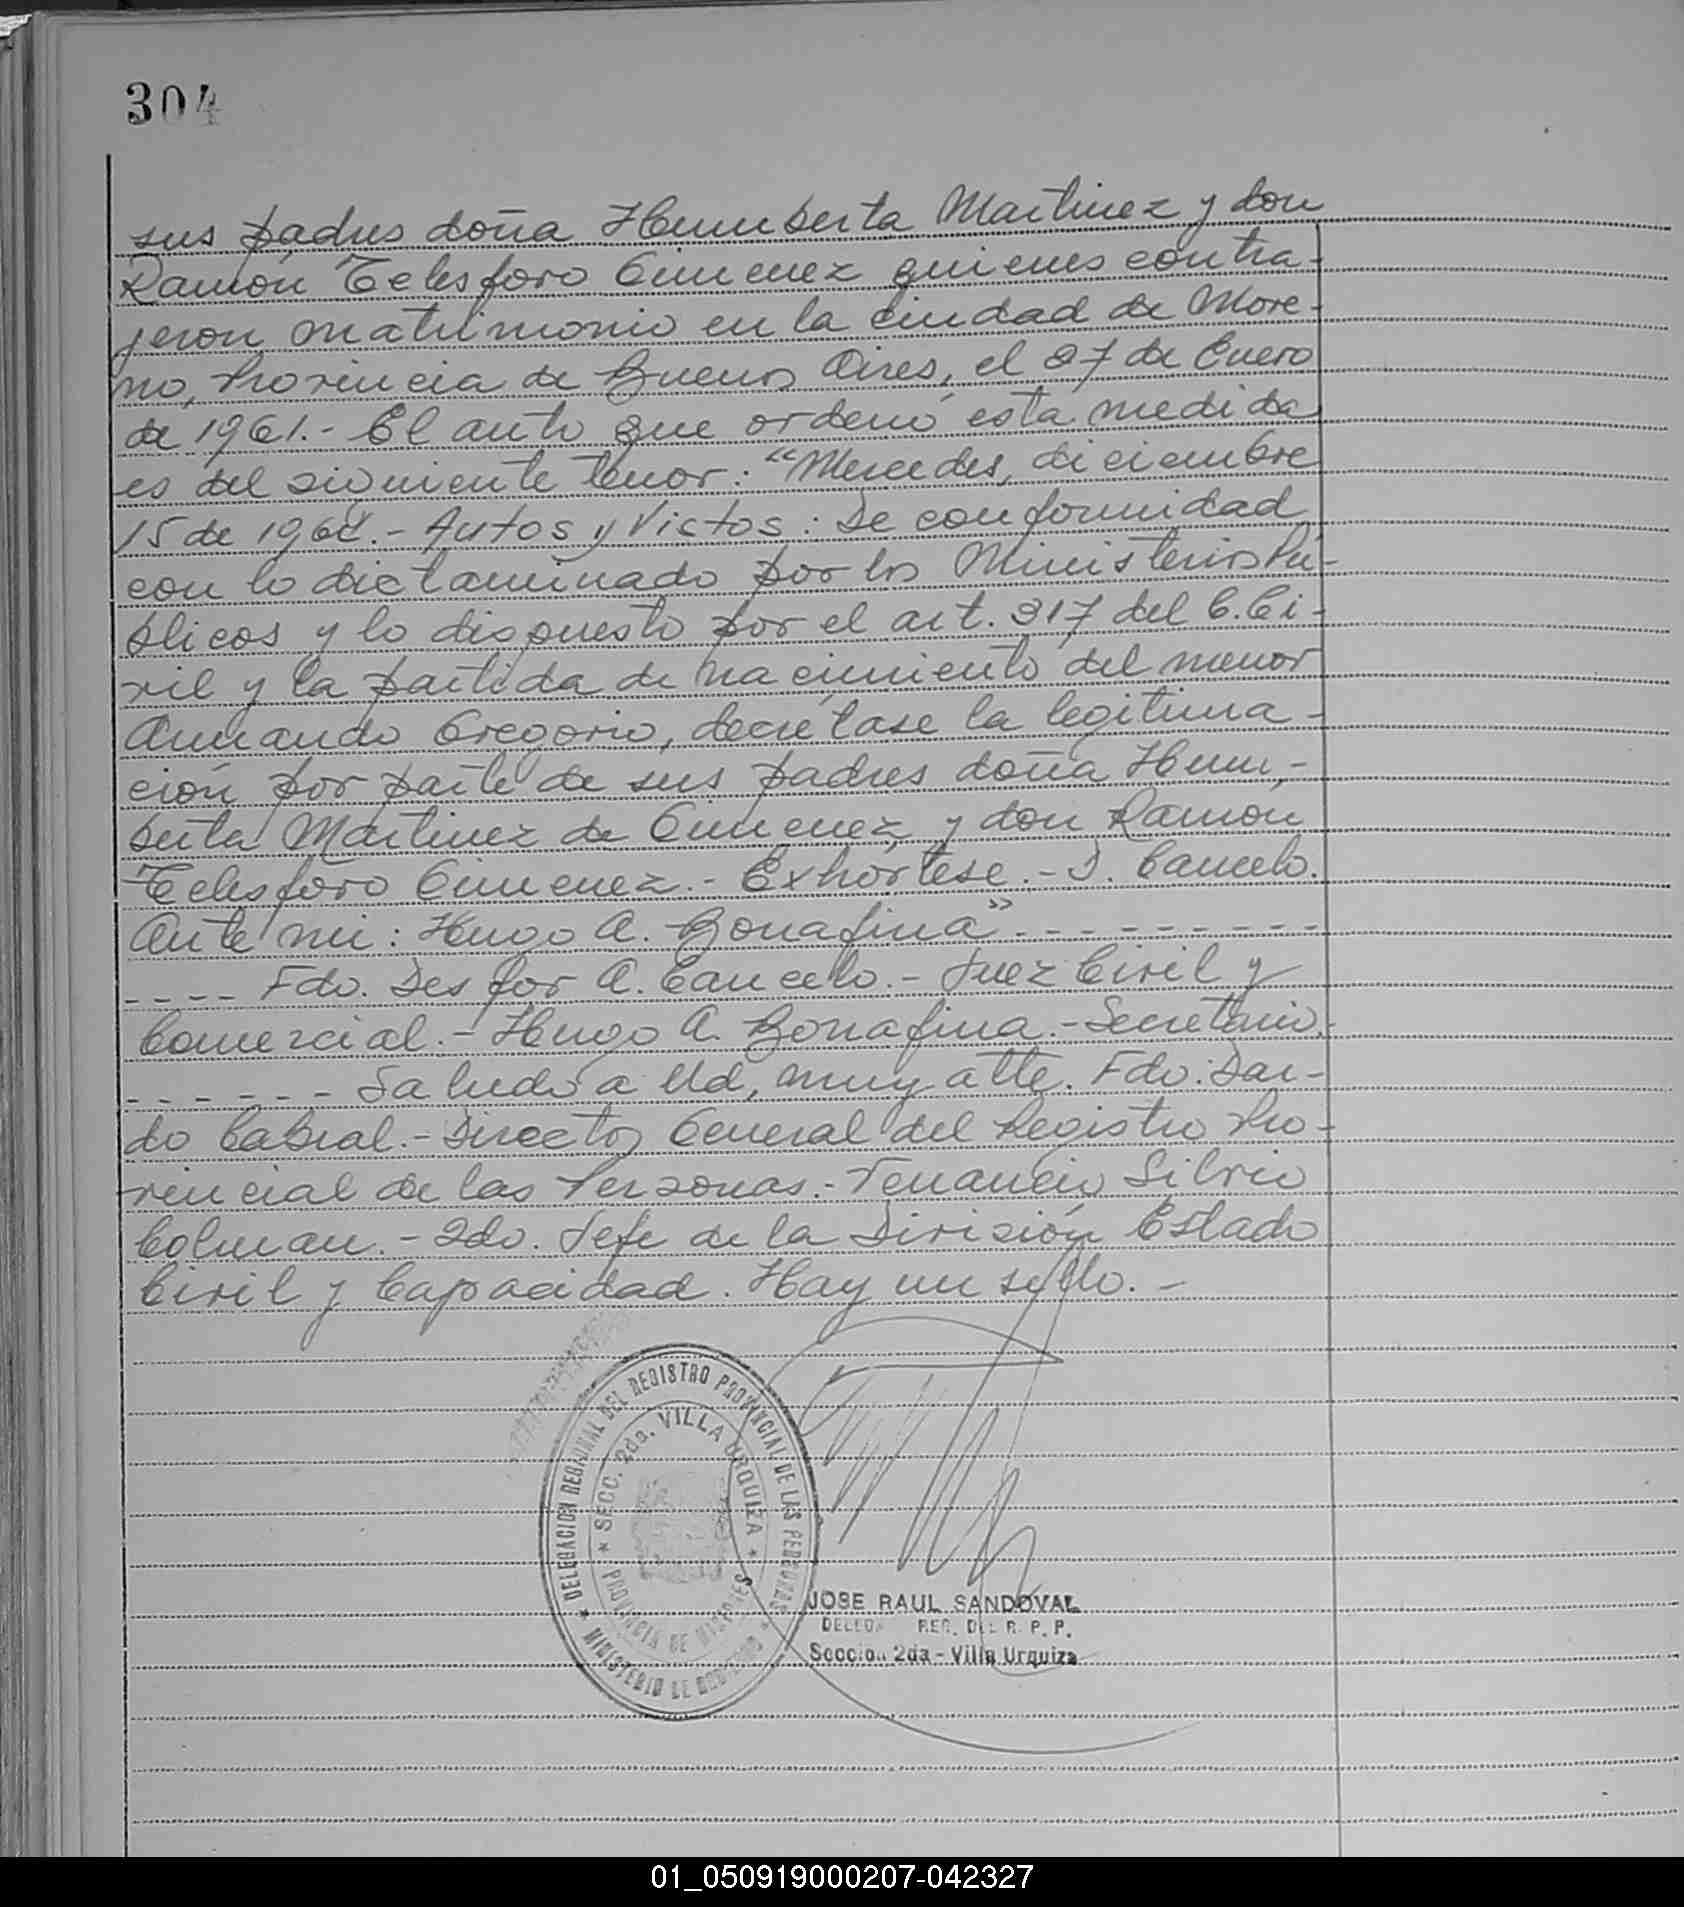 304
sus padres doña Humberta Martinez y don
Ramón Telesforo Gimenez quienes contra-
jeron matrimonio en la ciudad de More-
no, Provincia de Buenos Aires, el 27 de Enero
de 1961.- El auto que ordenó esta medida
es del siguiente tenor: "Mercedes, diciembre
15 de 196 .- Autos y Vistos: De conformidad
con lo dictaminado por los Ministerios Pú-
blicos y lo dispuesto por el art. 317 del C. Ci-
vil y la partida de nacimiento del menor
Armando Gregorio, decrétase la legitima-
ción por parte de sus padres doña Hum-
berta Martinez de Gimenez y don Ramón
Telesforo Gimenez.- Exhórtese.- D. Cancelo.
Ante mi: Hugo A. Bonafina" - - - - - - - - -
- - - - Fdo. Des for A. Cancelo.- Juez Civil y
Comercial.- Hugo A. Bonafina.- Secretario.
- - - - - - Saludo a Ud, muy atte. Fdo: Dar-
do Cabral.- Director General del Registro Pro-
vincial de las Personas.- Venancio Silvio
Colman.- 2do. Jefe de la División Estado
Civil y Capacidad. Hay un sello.-
DELEGACION REGIONAL DEL REGISTRO PROVINCIAL DE LAS PERSONAS
* SECC. 2da. VILLA URQUIZA *
PROVINCIA DE MISIONES
* MINISTERIO DE GOBIERNO *
JOSE RAUL SANDOVAL
REG. DEL R. P. P.
Sección 2da - Villa Urquiza
01_050919000207-042327